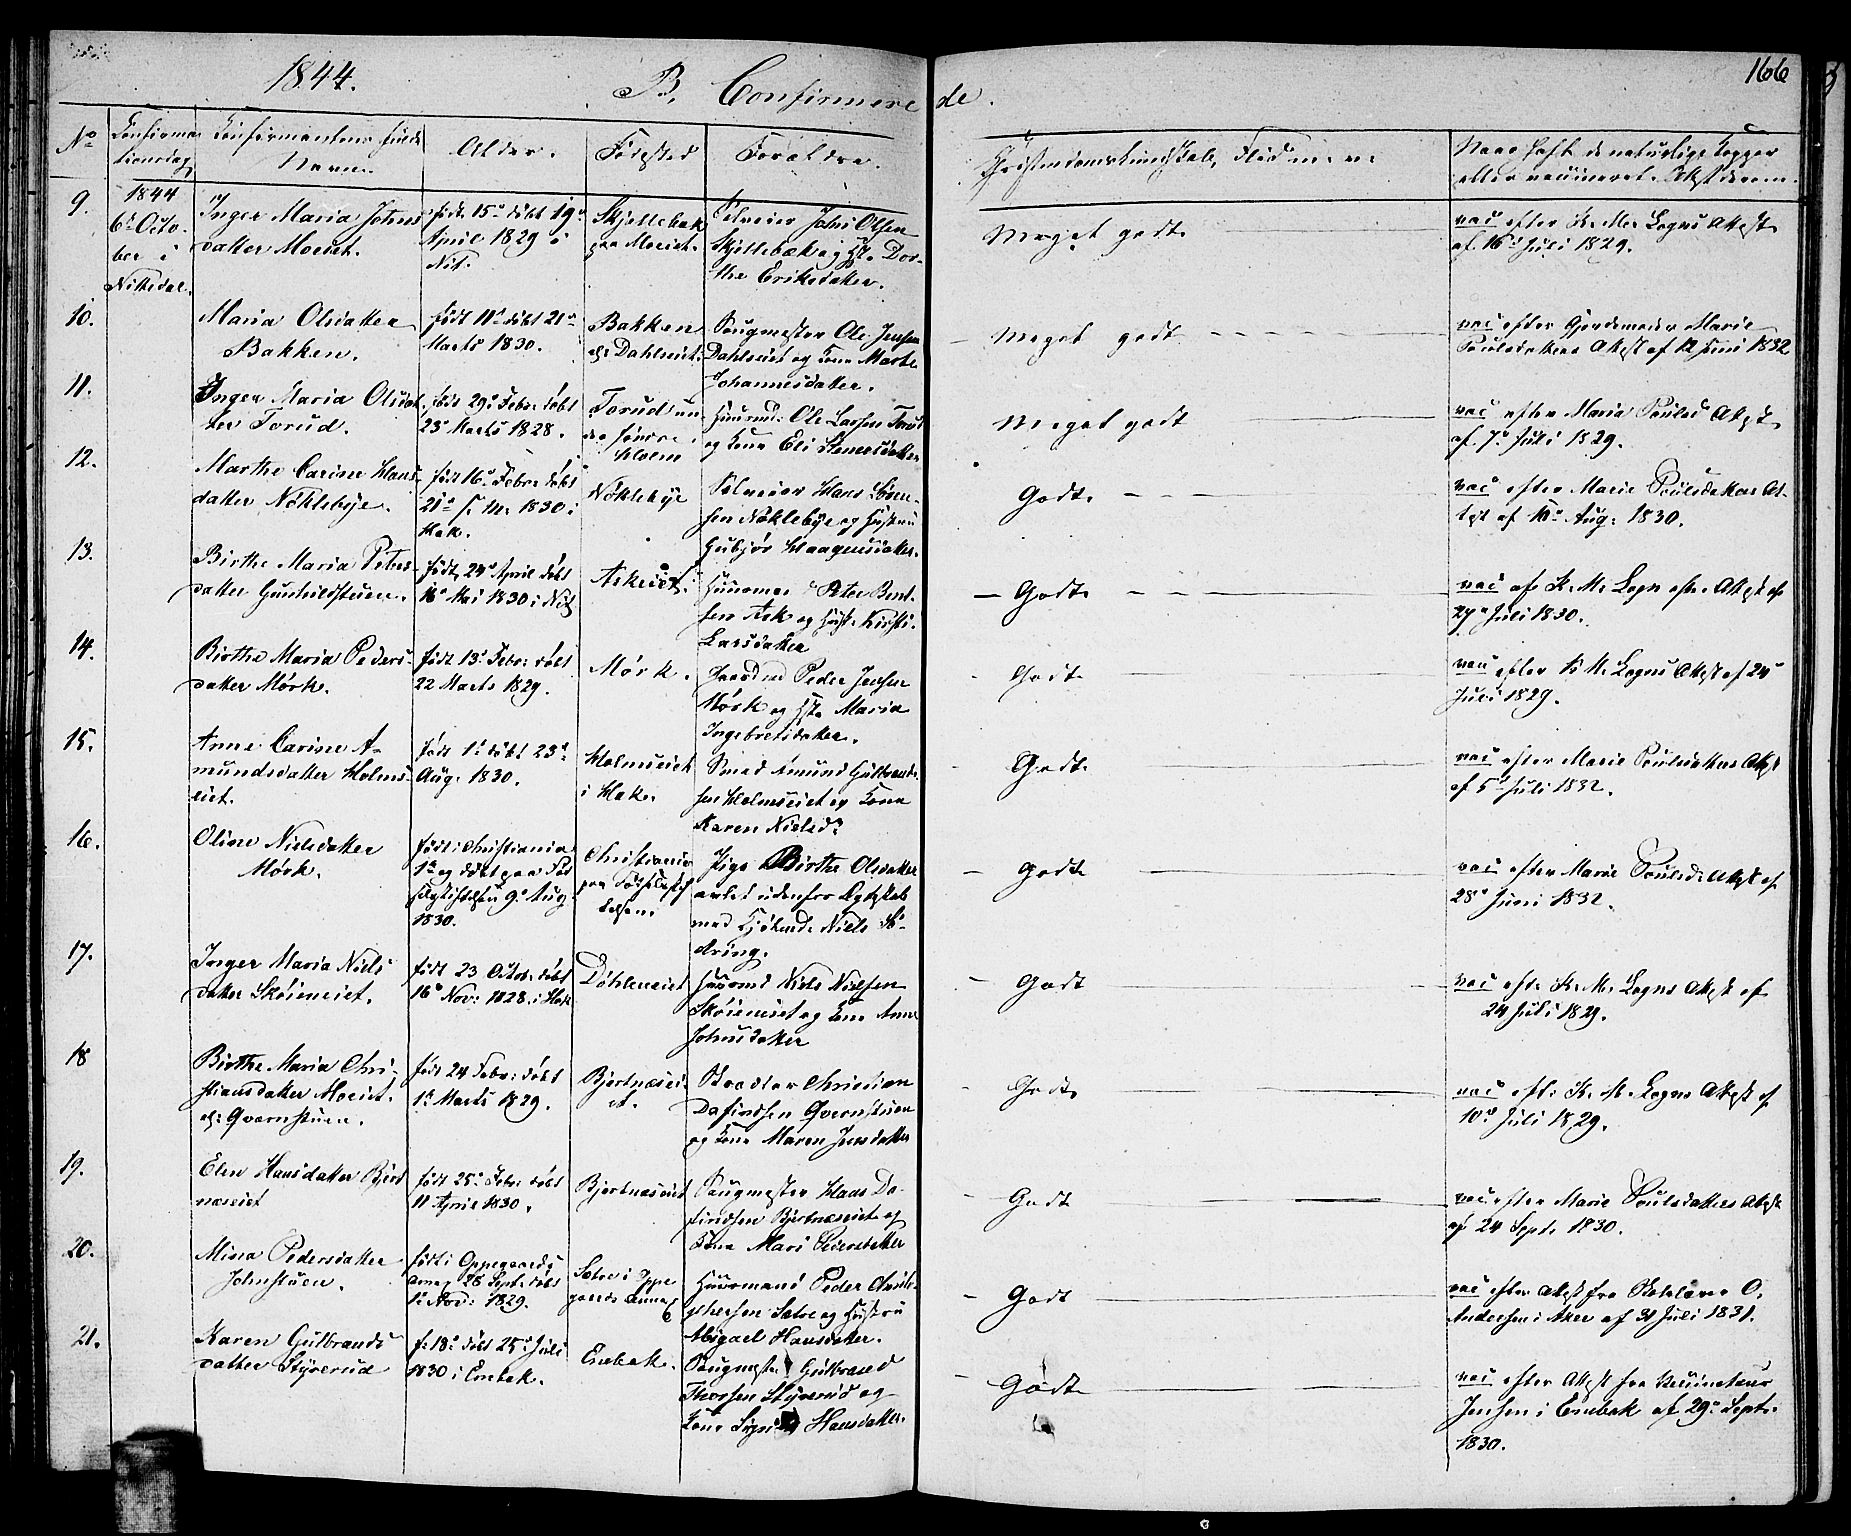 1844.
B. Confirmerede.
166
No
Confirmationsdag
Confirmantens fulde Navn
Alder.
Fødested
Forældre.
Christendomskundskab, Flid m. v.
Naar havt de naturlige Kopper eller vaccineret. Attest derom.
9.
1844
6te October i Nittedal.
Inger Maria Johnsdatter Moeiet.
født 15de døbt 19de April 1829 i Nit.
Skyllebæk paa Moeiet.
Selveier John Olsen Skyllebæk og Hst. Dorthe Eriksdatter.
Meget godt
vac efter K. M. Logns Attest af 16de Juli 1829.
10.
Maria Olsdatter Bakken.
født 11te døbt 21de Marts 1830.
Bakken el. Dahlseiet.
Saugmester Ole Jensen Dahlseiet og Kone Marte Johannesdatter.
Meget godt
vac efter Gjordemoder Marie Poulsdatters Attest af 12 Juni 1832
11.
Inger Maria Olsdatter Torud.
født 29de Febr. døbt 23de Marts 1828.
Torud under søndre Holm
Huusmd. Ole Larsen Torud og Kone Eli
Meget godt
vac efter Maria Poulsd. Attest af 7de Juli 1829.
12.
Marthe Carine Hansdatter Nøklebye.
født 16de Febr. døbt 21de s. M. 1830 i Hak.
Nøklebye
Selveier Hans Nøklebye og Hustru Gubjør Haagensdatter.
Godt.
vac efter Marie Poulsdatters Attest af 10de Aug. 1830.
13.
Birthe Maria Petersdatter Gunhildstuen.
født 24de April døbt 16de Mai 1830 i Nit
Askeiet.
Huusmd Peter Bentsen Ask og Hust. Kirsti Larsdatter
Godt.
vac af K. M. Logn efter Attest af 27de Juli 1830.
14.
Birthe Maria Pedersdatter Mørk.
født 13de Febr. døbt 22 Marts 1829.
Mørk.
Peder Jensen Mørk og Hst. Maria Ingebretsdatter.
Godt.
vac efter K M. Logns Attest af 24de Juli 1829.
15.
Anne Carine Amundsdatter Holmseiet.
født 1te døbt 23de Aug. 1830.
Holmseiet i Hak.
Smed Amund Gulbrandsen Holmseiet og Kone Karen Nielsd.
Godt.
vac efter Marie Poulsdatters Attest af 5te Juli 1832.
16.
Oline Nielsdatter Mørk.
født i Christiania 1te og døbt paa Fødselsstiftelsen 9de Aug 1830.
Christiania paa Fødselsstiftelsen
Pige Birthe Olsdatter avlet udenfor Ægteskab med Niels
Godt
vac efter Marie Poulsd. Attest af 28de Juni 1832.
17.
Inger Maria Nielsdatter Skøieneiet.
født 23 Octob. døbt 16de Nov. 1828. i Hak
Døhleneiet
Huusmd Niels Nielsen Skøieneiet og Kone Anne Johnsdatter
Godt
vac eft. K. M. Logns Attest af 24 Juli 1829.
18
Birthe Maria Christiansdatter Moeiet. el. Qvernstuen.
født 24 Febr. døbt 1te Marts 1829.
Bjertnæseiet.
Christian Dafindsen Qvernstuen og Kone Maren Jensdatter
Godt.
vac eft. K. M. Logns Attest af 10de Juli 1829.
19.
Elen Hansdatter Bjertnæseiet
født 25de Febr. døbt 11 April 1830.
Bjertnæseiet
Saugmester Hans Dafindsen Bjertnæseiet og Kone Mari Pedersdatter
Godt
vac efter Marie Poulsdatters Attest af 24 Sept. 1830.
20.
Mina Pedersdatter Johnstuen.
født i Oppegaards Annex 28 Sept. døbt 1te Nov. 1829.
Sætre i Oppegaards Annex
Huusmand Peder Sætre og Hustru Abigael Hansdatter.
Godt
vac efter Attest fra Skolelærer O. Andersen i Aker af 31 Juli 1831.
21.
Karen Gulbrandsdatter Styverud
f. 18de døbt 25de Juli 1830 i Enebak.
Enebak.
Saugmester Gulbrand Thorsen Styverud og Kone Hansdatter.
Godt
vac efter Attest fra Vaccinateur Jensen i Enebak af 29de Septr. 1830.